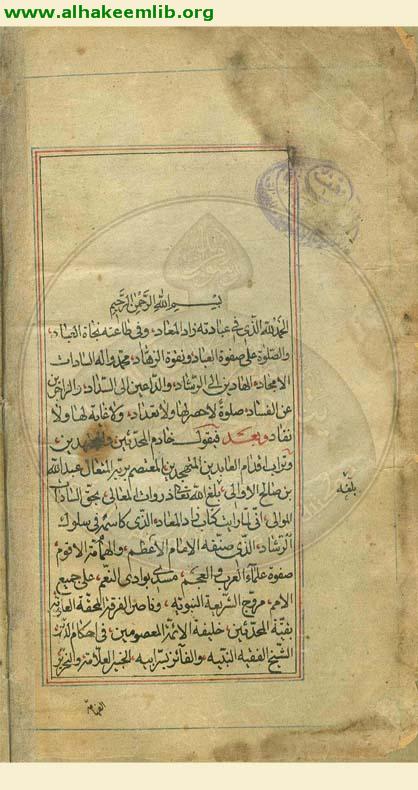 www.alhakeemlib.org
بسم الله الرحمن الرحيم
الحمد لله الذي في عبادته زاد المعاد، وفي طاعته نجاة العباد،
والصلوة على صفوة العباد ونقوة الزهاد، محمد واله السادات
الامجاد، الهادين الى الرشاد، والداعين الى السداد، والزاجرين
عن الفساد، صلوة لا حصر لها ولا تعداد، ولا غاية لها ولا
نفاد وبعد فيقول خادم المحدثين والمجتهدين
وتراب اقدام العابدين المتهجدين المعتصم بربه المتعال عبد الله
بن صالح الاوالي، بلغه الله تعالى المعالي، بحق السادات
الموالي، اني لما رايت كتاب زاد المعاد، الذي كاسمه في سلوك
الرشاد، الذي صنفه الامام الاعظم، والهمام الاقوم
صفوة علماء العرب والعجم، مسدي بوادي النعم، على جميع
الامم، مروج الشريعة النبوية، وناصر الفرقة المحقة العلية
بقية المحدثين، خليفة الائمة المعصومين، في احكام الدين
الشيخ الفقيه النبيه، والفائز بسر ابيه، الحبر العلامة، والنحرير
بلغه
الفهامة